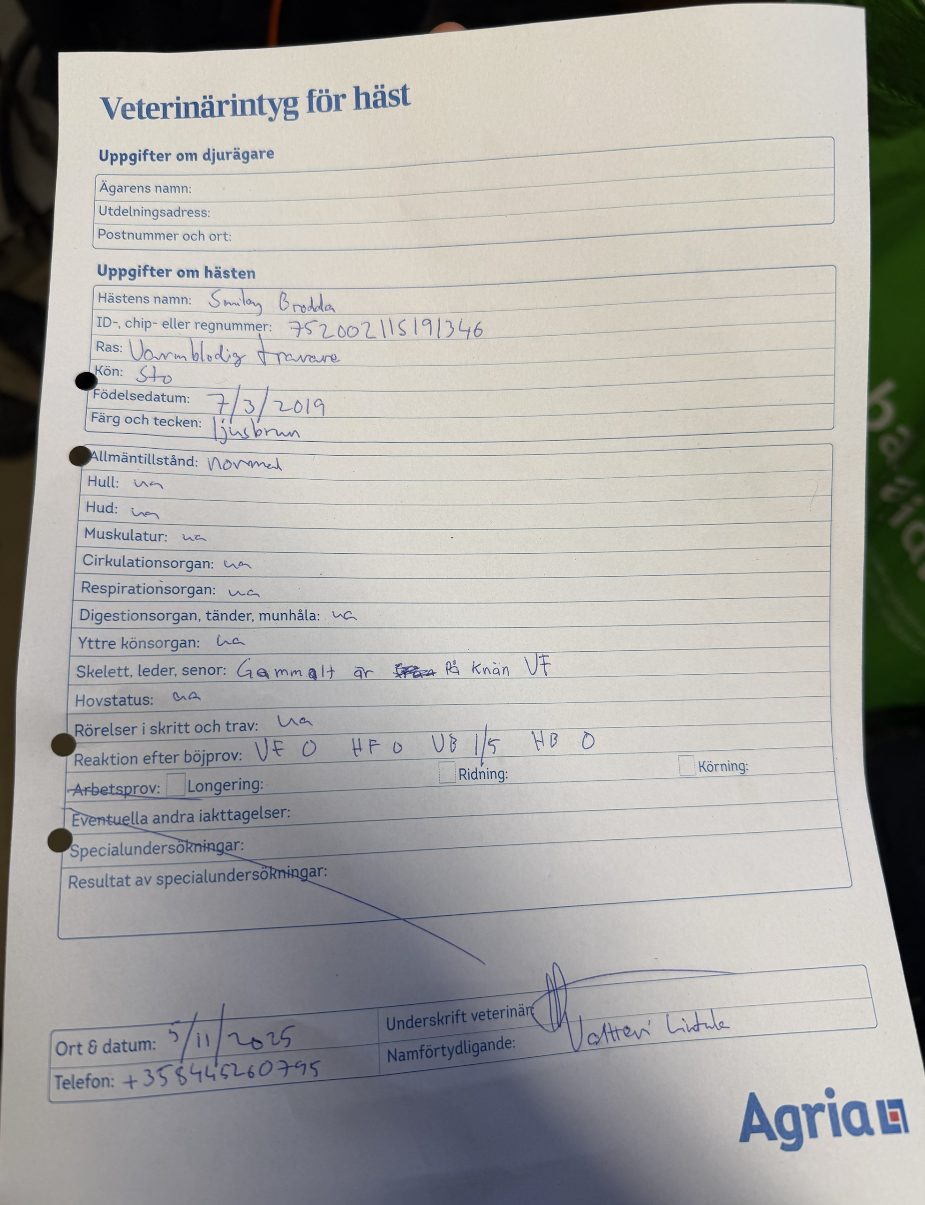 Veterinärintyg för häst
Uppgifter om djurägare
Ägarens namn:
Utdelningsadress:
Postnummer och ort:
Uppgifter om hästen
Hästens namn: Smilay Brodda
ID-, chip- eller regnummer: 752002115191346
Ras: Varmblodig travare
Kön: Sto
Födelsedatum: 7/3/2019
Färg och tecken: ljusbrun
Allmäntillstånd: normal
Hull: ua
Hud: ua
Muskulatur: ua
Cirkulationsorgan: ua
Respirationsorgan: ua
Digestionsorgan, tänder, munhåla: ua
Yttre könsorgan: ua
Skelett, leder, senor: Gammalt är på knän VF
Hovstatus: ua
Rörelser i skritt och trav: ua
Reaktion efter böjprov: VF 0 HF 0 VB 1/5 HB 0
Arbetsprov: Longering: Ridning: Körning:
Eventuella andra iakttagelser:
Specialundersökningar:
Resultat av specialundersökningar:
Ort & datum: 5/11/2025
Underskrift veterinär:
Telefon: +358445260795
Namförtydligande: Valtteri
Agria